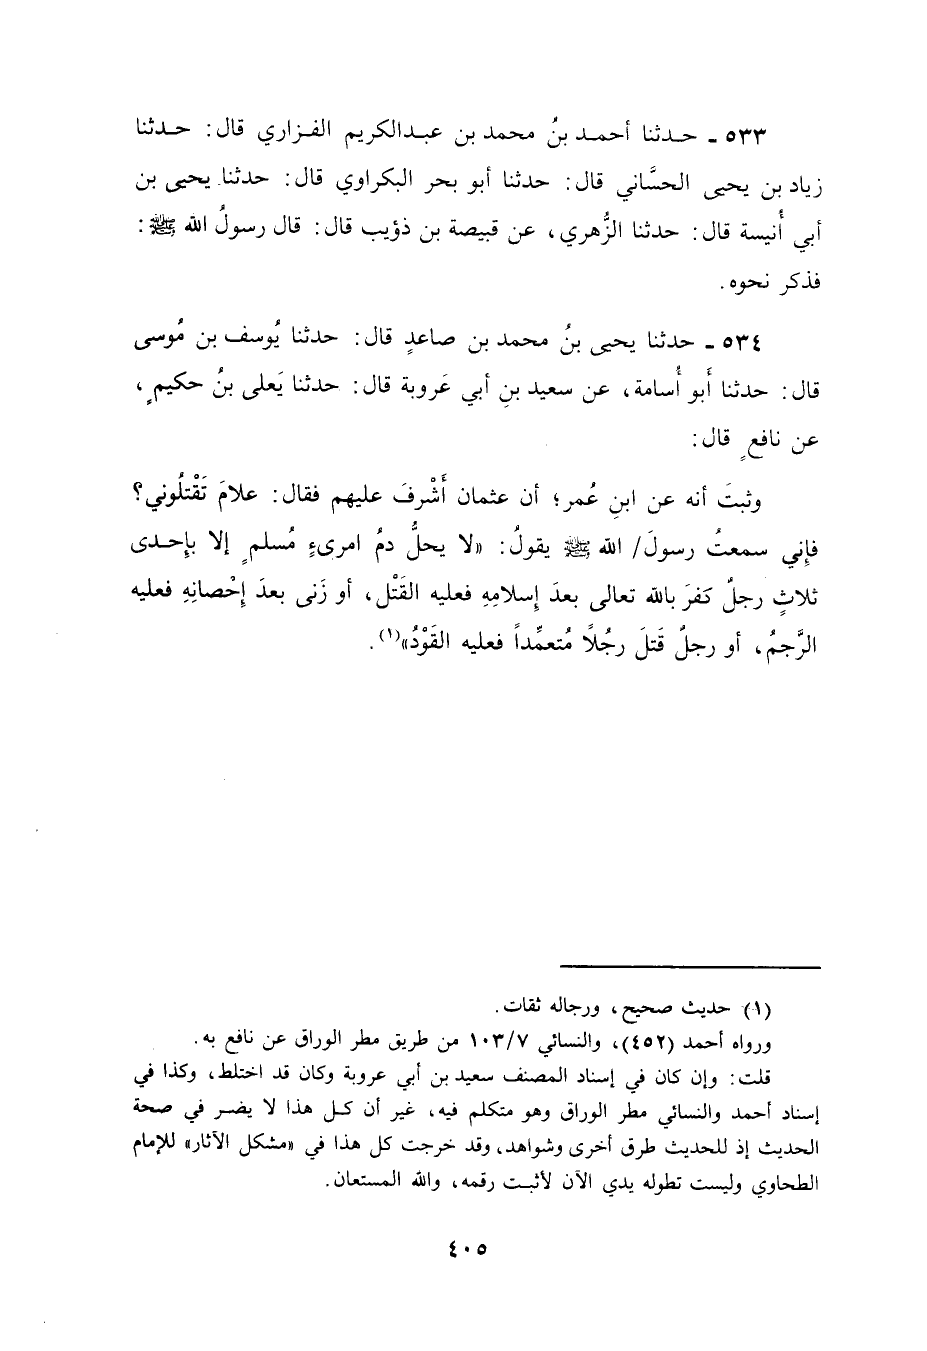 ٥٣٣ ـ حـدثنا أحمـد بنُ محمد بن عبـدالكريم الفـزاري قال: حـدثنا
زياد بن يحيى الحسَّاني قال: حدثنا أبو بحر البكراوي قال: حدثنا يحيى بن
أبي أُنيسة قال: حدثنا الزُّهري، عن قبيصة بن ذؤيب قال: قال رسولُ الله ﷺ:
فذكر نحوه.
٥٣٤ ـ حدثنا يحيى بنُ محمد بن صاعدٍ قال: حدثنا يُوسف بن مُوسى
قال: حدثنا أَبو أُسامة، عن سعيد بنِ أبي عَروبة قال: حدثنا يَعلى بنُ حكيمٍ،
عن نافعٍ قال:
وثبتَ أنه عن ابنِ عُمر؛ أن عثمان أَشْرفَ عليهم فقال: علامَ تَقْتلُوني؟
فإِني سمعتُ رسولَ/ الله ﷺ يقولُ: «لا يحلُّ دمُ امرىءٍ مُسلمٍ إلا بإِحـدى
ثلاثٍ رجلٌ كفرَ بالله تعالى بعدَ إِسلامِهِ فعليه القَتْل، أو زَنى بعدَ إِحْصانِهِ فعليه
الرَّجمُ، أو رجلٌ قَتلَ رجُلاً مُتعمِّداً فعليه القَوْدُ»(١).
(١) حديث صحيح، ورجاله ثقات.
ورواه أحمد (٤٥٢)، والنسائي ١٠٣/٧ من طريق مطر الوراق عن نافع به.
قلت: وإن كان في إسناد المصنف سعيد بن أبي عروبة وكان قد اختلط، وكذا في
إسناد أحمد والنسائي مطر الوراق وهو متكلم فيه، غير أن كـل هذا لا يضـر في صحة
الحديث إذ للحديث طرق أخرى وشواهد، وقد خرجت كل هذا في «مشكل الآثار» للإمام
الطحاوي وليست تطوله يدي الآن لأثبت رقمه، والله المستعان.
٤٠٥